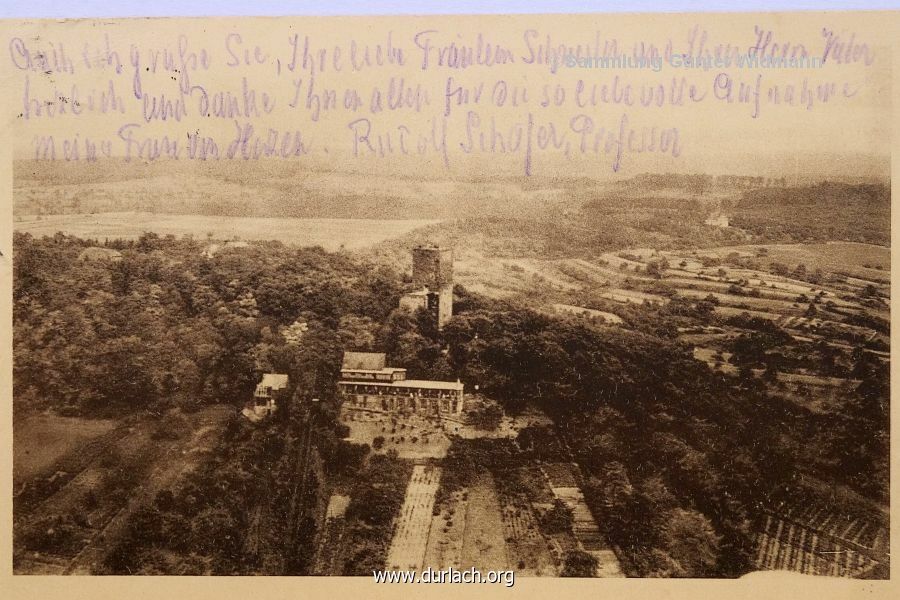 Auch ich grüße Sie, Ihre liebe Fräulein Schwester und Ihren Herrn Vater
herzlich und danke Ihnen allen für die so liebevolle Aufnahme
meiner Frau von Herzen. Rudolf Schäfer, Professor
Sammlung Günter Widmann
www.durlach.org